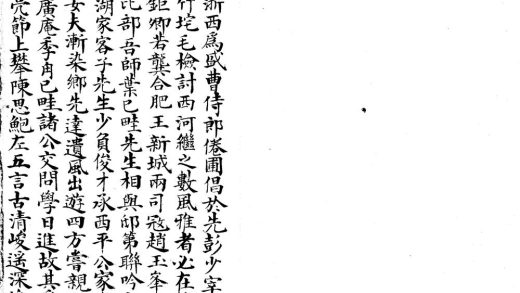 浙西爲盛曹侍郎倦圃倡於先彭少宰
竹垞毛檢討西河繼之數風雅者必在
鉅卿若龔合肥王新城兩司冦趙玉峯
比部吾師葉已畦先生相與邸第聯吟
湖家客子先生少負俊才承西平公家
女夫漸染鄉先達遺風出遊四方嘗親
廣庵季冉已畦諸公交問學日進故其
節上攀陳思鮑左五言古清峻遥深